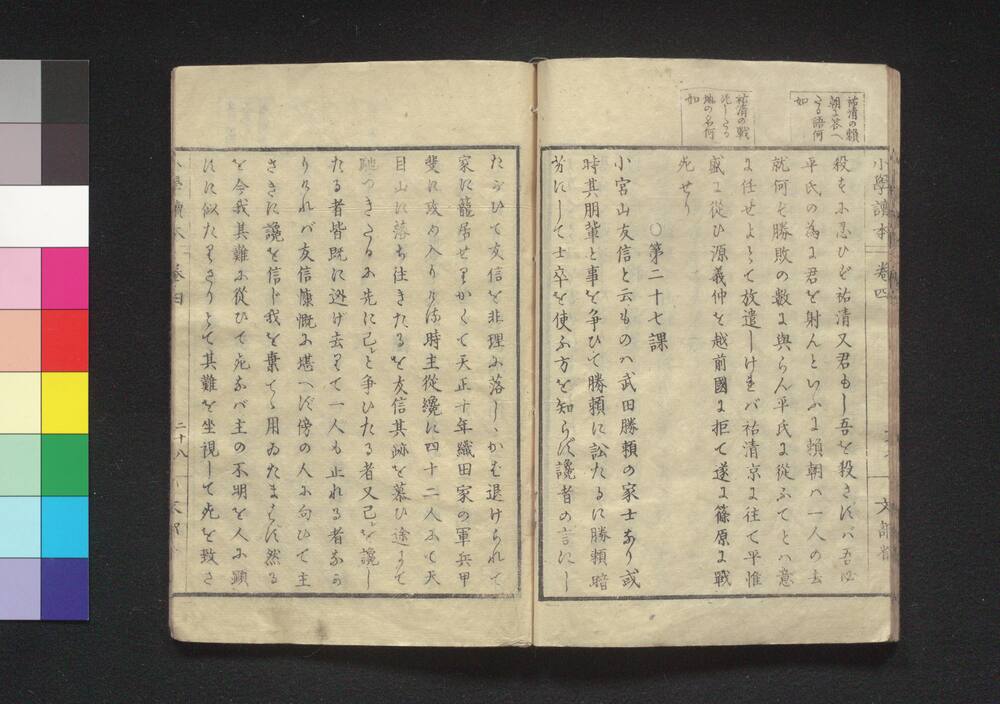 祐清の頼
朝に答へ
たる語何
如
祐清の戦
死したる
地の名何
如
小學讀本 卷四
殺すに忍びず祐清又君もし吾を殺さずバ吾必
平氏の為に君を射んといふに頼朝ハ一人の去
就何ぞ勝敗の數に與らん平氏に從ふてとハ意
に任せよとて放遣しけれバ祐清京に往て平惟
盛に從ひ源義仲を越前國に拒て遂に篠原に戰
死せり
○第二十七課
小宮山友信と云ものハ武田勝頼の家士なり或
時其朋輩と事を争ひて勝頼に訟たるに勝頼暗
劣にして士卒を使ふ方を知らず讒者の言にし
たがひて友信を非理に落しゝかば退けられて
家に籠居せりかくて天正十年織田家の軍兵甲
斐に攻め入りける時主從纔に四十二人にて天
目山に落ち往きたるを友信其跡を慕ひ途にて
馳つきたるに先に己と争ひたる者又己を讒し
たる者皆既に逃け去りて一人も止れる者なか
りけれバ友信慷慨に堪へず傍の人に向ひて主
さきに讒を信じ我を棄てゝ用ゐたまはず然る
を今我其難に從ひて死なバ主の不明を人に顕
はに似たりさりとて其難を坐視して死を致さ
小學讀本 卷四
二十八